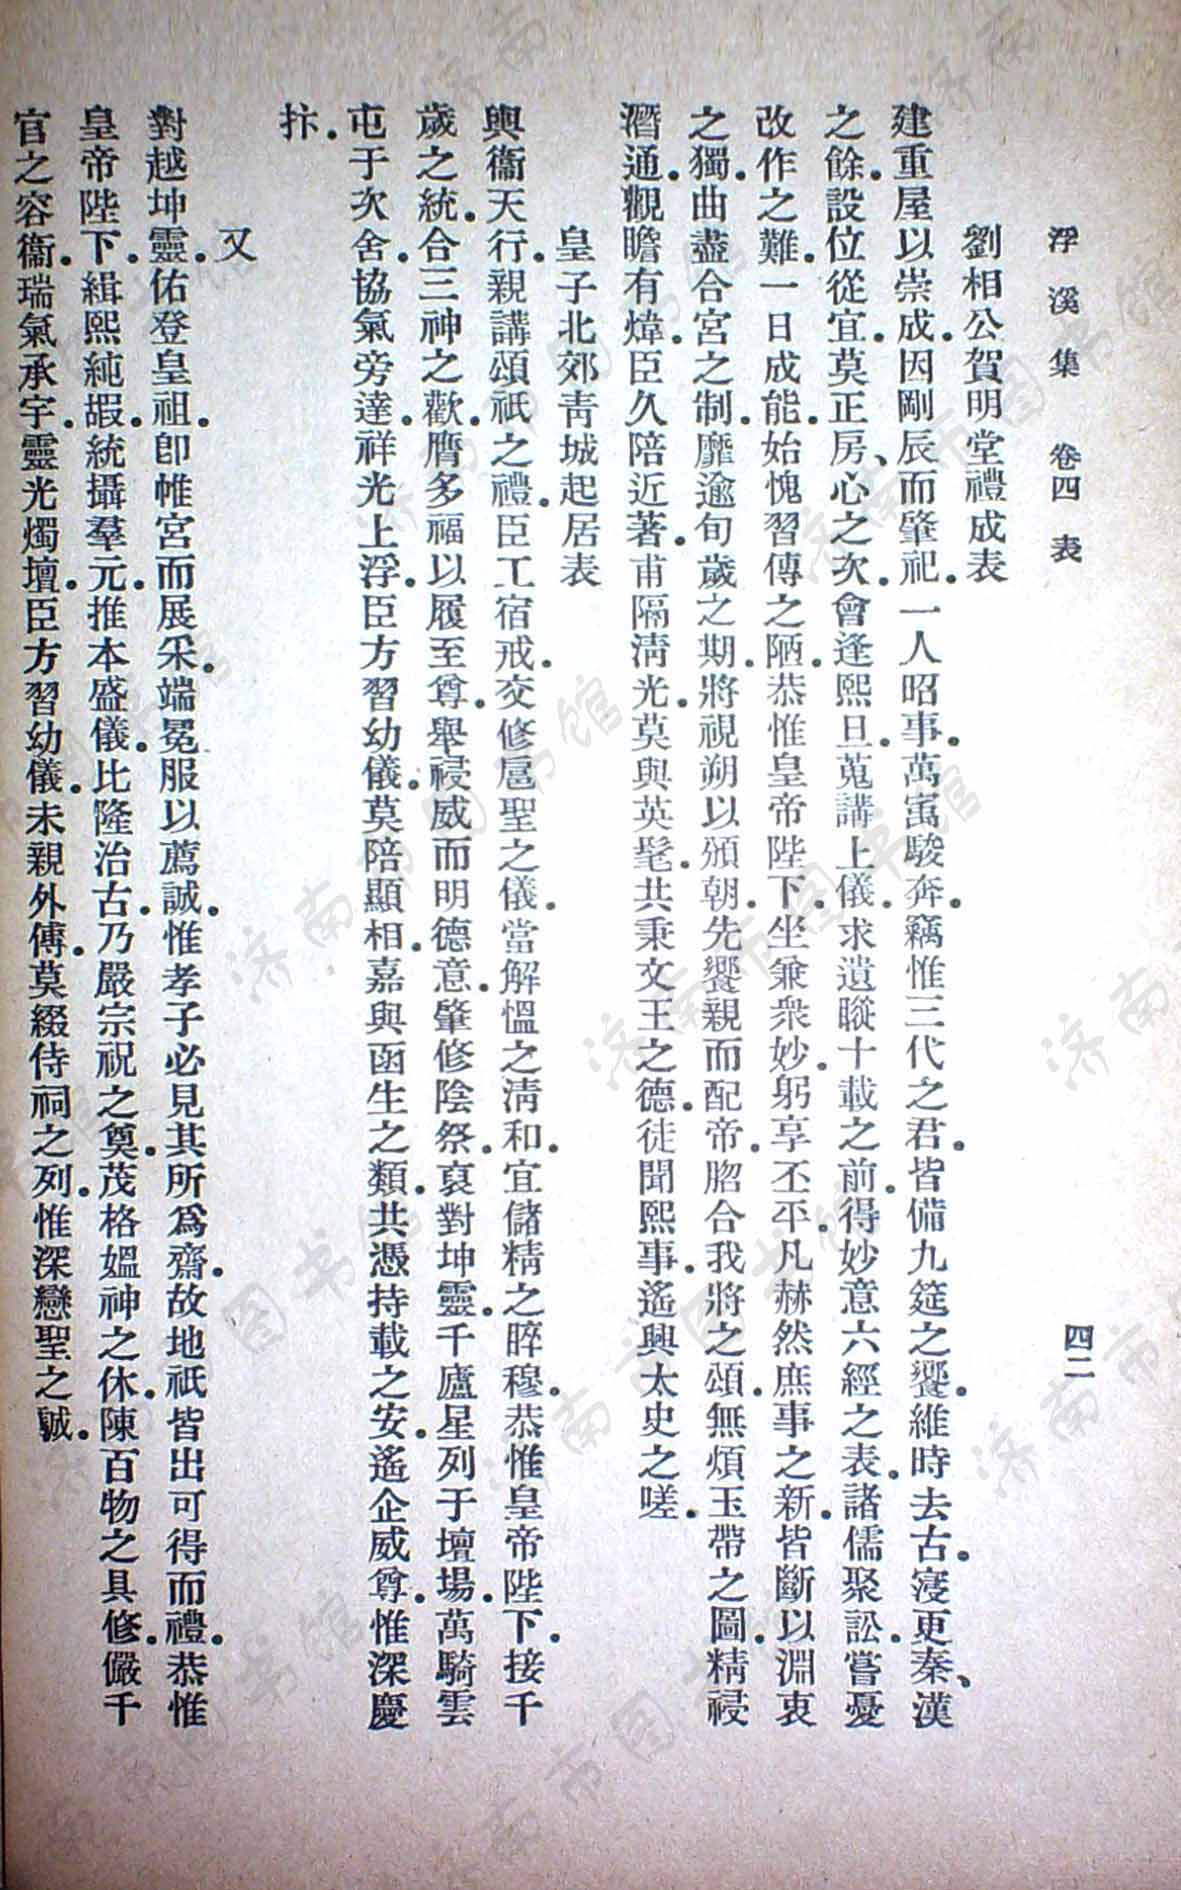 浮溪集 卷四 表 四二
劉相公賀明堂禮成表
建重屋以崇成.因剛辰而肇祀.一人昭事.萬㝢駿奔.竊惟三代之君.皆備九筵之饗.維時去古.寖更秦、漢
之餘.設位從宜.莫正房、心之次.會逢熙旦.蒐講上儀.求遺蹤十載之前.得妙意六經之表.諸儒聚訟.嘗憂
改作之難.一日成能.始愧習傳之陋.恭惟皇帝陛下.坐兼衆妙.躬享丕平.凡赫然庶事之新.皆斷以淵衷
之獨.曲盡合宮之制.靡逾旬歲之期.將視朔以頒朝.先饗親而配帝.脗合我將之頌.無煩玉帶之圖.精祲
潛通.觀瞻有煒.臣久陪近著.甫隔清光.莫與英髦.共秉文王之德.徒聞熙事.遙興太史之嗟.
皇子北郊青城起居表
輿衞天行.親講頌祇之禮.臣工宿戒.交修扈聖之儀.當解慍之淸和.宜儲精之睟穆.恭惟皇帝陛下.接千
歲之統.合三神之歡.膺多福以履至尊.舉祲威而明德意.肇修陰祭.裒對坤靈.千廬星列于壇場.萬騎雲
屯于次舍.協氣旁達.祥光上浮.臣方習幼儀.莫陪顯相.嘉與函生之類.共憑持載之安.遙企威尊.惟深慶
抃.
又
對越坤靈.佑登皇祖.卽帷宮而展采.端冕服以薦誠.惟孝子必見其所爲齋.故地祇皆出可得而禮.恭惟
皇帝陛下.緝熙純嘏.統攝羣元.推本盛儀.比隆治古.乃嚴宗祝之奠.茂格媼神之休.陳百物之具修.儼千
官之容衞.瑞氣承宇.靈光燭壇.臣方習幼儀.未親外傅.莫綴侍祠之列.惟深戀聖之誠.